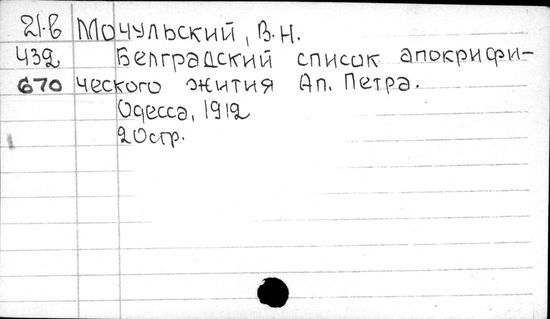 21.в Мочульский, В.Н.
432 Белградский список апокрифи-
670 ческого жития Ап. Петра.
Одесса, 1912
20стр.